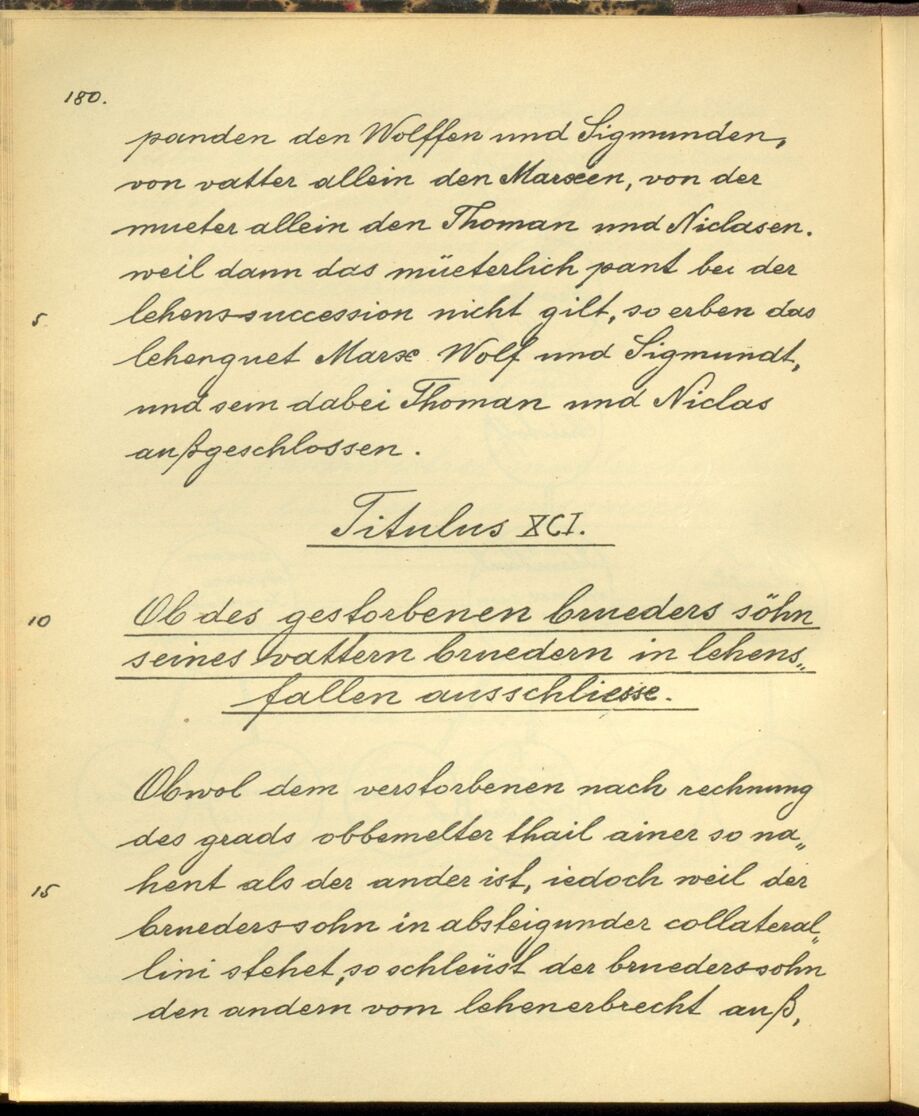 180.
panden den Wolffen und Sigmunden,
von vatter allein den Marxen, von der
mueter allein den Thoman und Niclasen.
weil dann das müeterlich pant bei der
5 lehenssuccession nicht gilt, so erben das
lehenguet Marx Wolf und Sigmundt,
und sein dabei Thoman und Niclas
außgeschlossen.
Titulus XCI.
10 Ob des gestorbenen brueders söhn
seines vattern bruedern in lehens„
fallen ausschliesse.
Obwol dem verstorbenen nach rechnung
des grads obbemelter thail ainer so na„
15 hent als der ander ist, iedoch weil der
bruederssohn in absteigunder collateral„
lini stehet, so schleüst der bruederssohn
den andern vom lehenerbrecht auß,